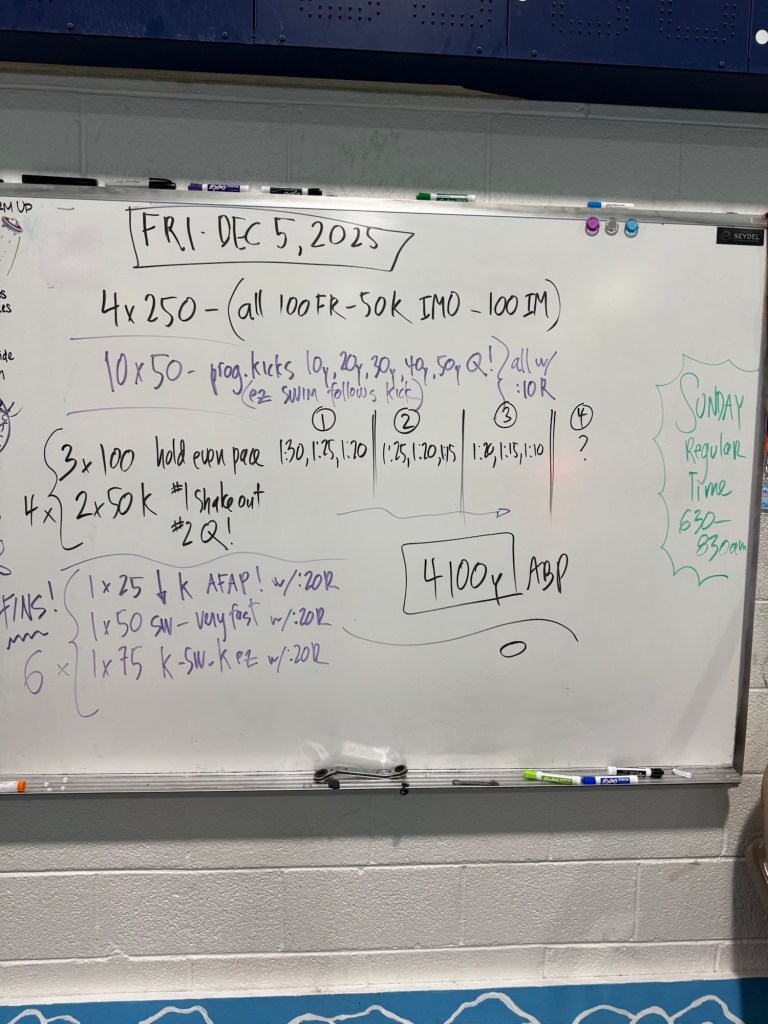 FRI. DEC 5, 2025
4 x 250 - (all 100 FR - 50 K IMO - 100 IM)
10 x 50 - prog. kicks 10y, 20y, 30y, 40y, 50y Q! } all w/ :10 R
(ez swim follows kick)
① ② ③ ④
3 x 100 hold even pace 1:30, 1:25, 1:20 | 1:25, 1:20, 1:15 | 1:20, 1:15, 1:10 | ?
4x { 2 x 50 K #1 shake out
#2 Q!
FINS!
1 x 25 ↓ K AFAP! w/:20R
1 x 50 sw - very fast w/:20R
6 x { 1 x 75 K-SW-K ez w/:20R
4100y ABP
SUNDAY
Regular
Time
630-
830am
SEYDEL
M UP
EXPO